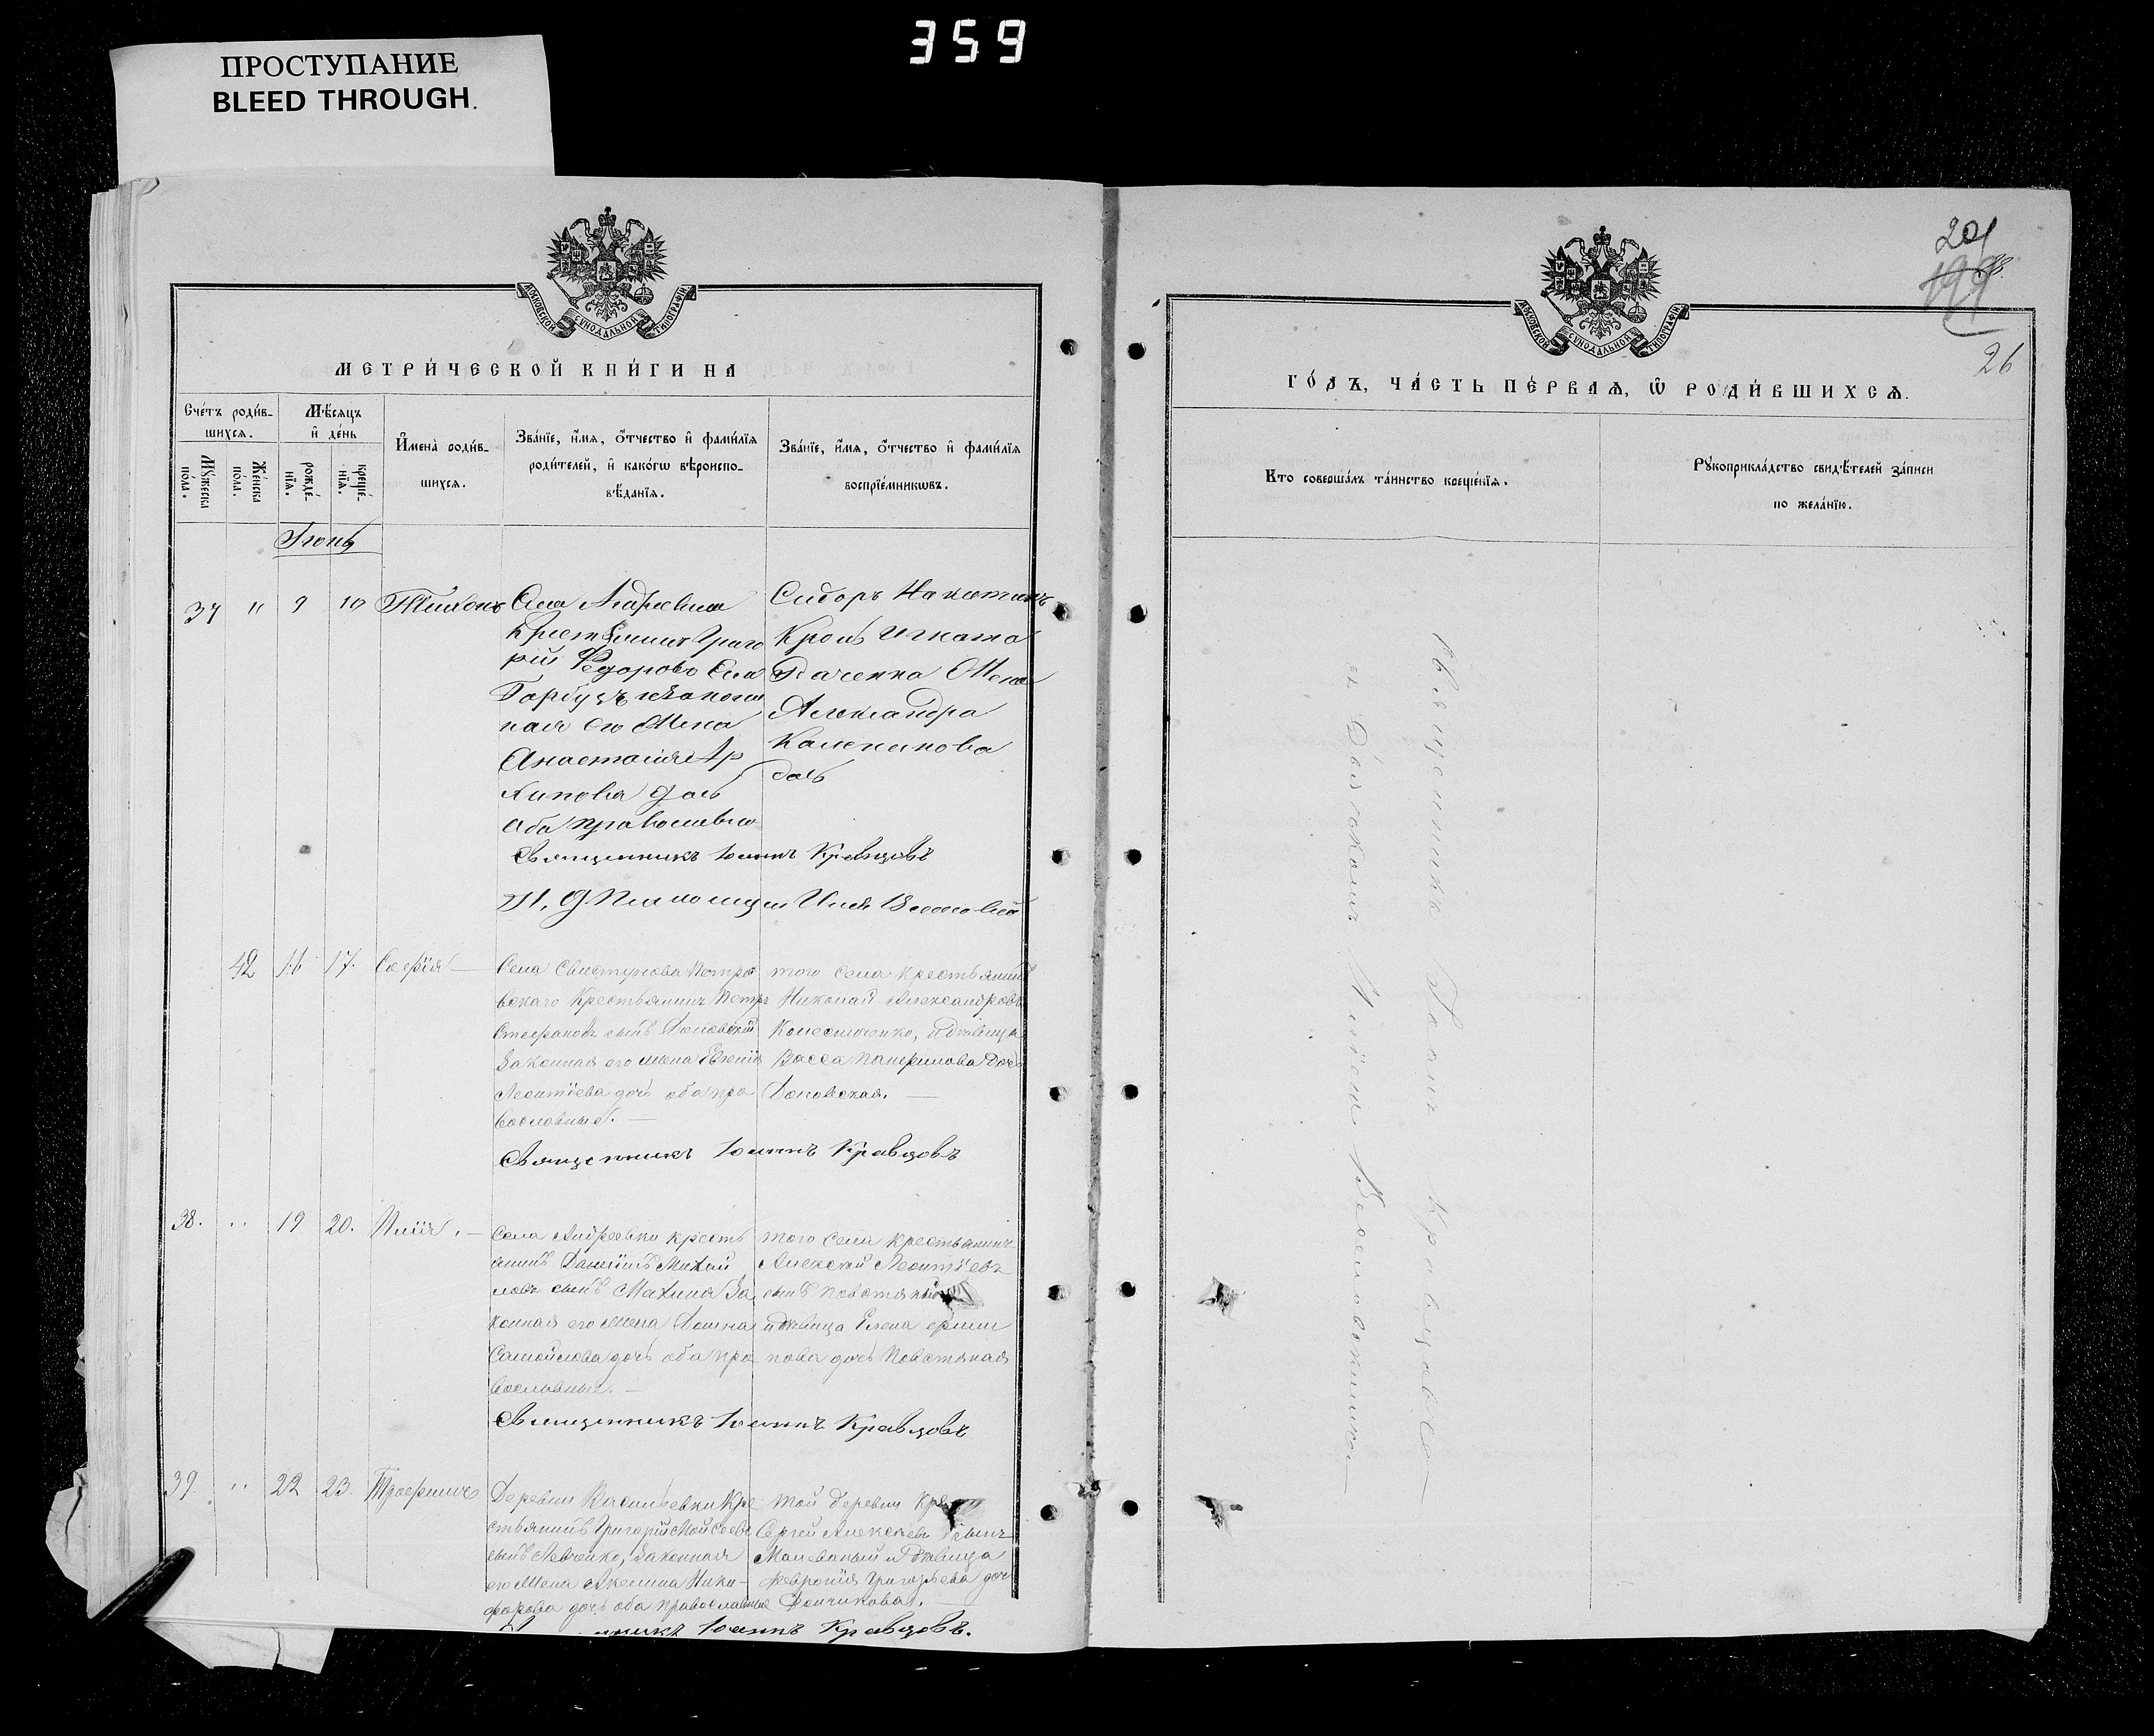 359
ПРОСТУПАНИЕ
BLEED THROUGH.
МОСКОВСКОЙ СУНОДАЛЬНОЙ ТИПОГРАФІИ
МЕТРИ́ЧЕСКОЙ КНИ́ГИ НА
Сче́тъ роди́в-
шихся.
Мꙋ́жеска по́ла.
Же́нска по́ла.
Мѣ́сяцъ
и҆ де́нь
рожде́-
нїѧ.
креще́-
нїѧ.
И҆мена̀ роди́в-
шихся.
Зва́нїе, и҆́мя, ѻ҆́тчество и҆ фами́лїя
роди́телей, и҆ како́гѡ вѣроиспо-
вѣ́данїя.
Зва́нїе, и҆́мя, ѻ҆́тчество и҆ фами́лїя
воспрїе́мникѡвъ.
Іюнь
37 " 9 10 Тихонъ
Села Андреевки
Крестьянинъ Григо
рій Федоровъ сынъ
Гарбузъ и законо
ная его жена
Анастасія Ар
хипова дочь
оба православно
Сидоръ
Кроль Игната
жена
Александра
дочь
Священникъ Іоаннъ Кравцовъ
42 16 17. Софія —
Села Свистунова Петро
вскаго Крестьянинъ Петръ
Стефановъ сынъ
Законная его жена Евгенія
Леонтіева дочь оба пра
вославные. —
того села крестьянинъ
Николай Александровъ
Колесниченко, и девица
Васса Панфилова дочь
Священникъ Іоаннъ Кравцовъ
38. " 19 20. Илія. —
Села Андреевки кресть
янинъ Даніилъ Михай
ловъ сынъ Махиня За
конная его жена Домна
Самойлова дочь оба пра
вославные. —
того села крестьянинъ
Алексей Леонтіевъ
сынъ
и девица Елена
нова дочь Повстяная
Священникъ Іоаннъ Кравцовъ
39. " 22 23. Трофимъ
Деревни Васильевки Кре
стьянинъ Григорій Мойсеевъ
сынъ Левченко, Законная
его жена Акелина Ники-
форова дочь оба православные
той деревни
Сергей Алексеевъ сынъ
Малеваный и девица
Февронія Григорьева дочь
Дончикова. —
Іоаннъ Кравцовъ.
МОСКОВСКОЙ СУНОДАЛЬНОЙ ТИПОГРАФІИ
201
199
26
ГО́ДЪ, ЧА́СТЬ ПЕ́РВАѦ, Ѡ҆ РОДИ́ВШИХСѦ.
Кто соверша́лъ та́инство креще́нїѧ.
Рꙋкоприкла́дство свидѣ́телей за́писи
по жела́нїю.
Священникъ Іоаннъ Кравцовъ —
съ Дьякономъ